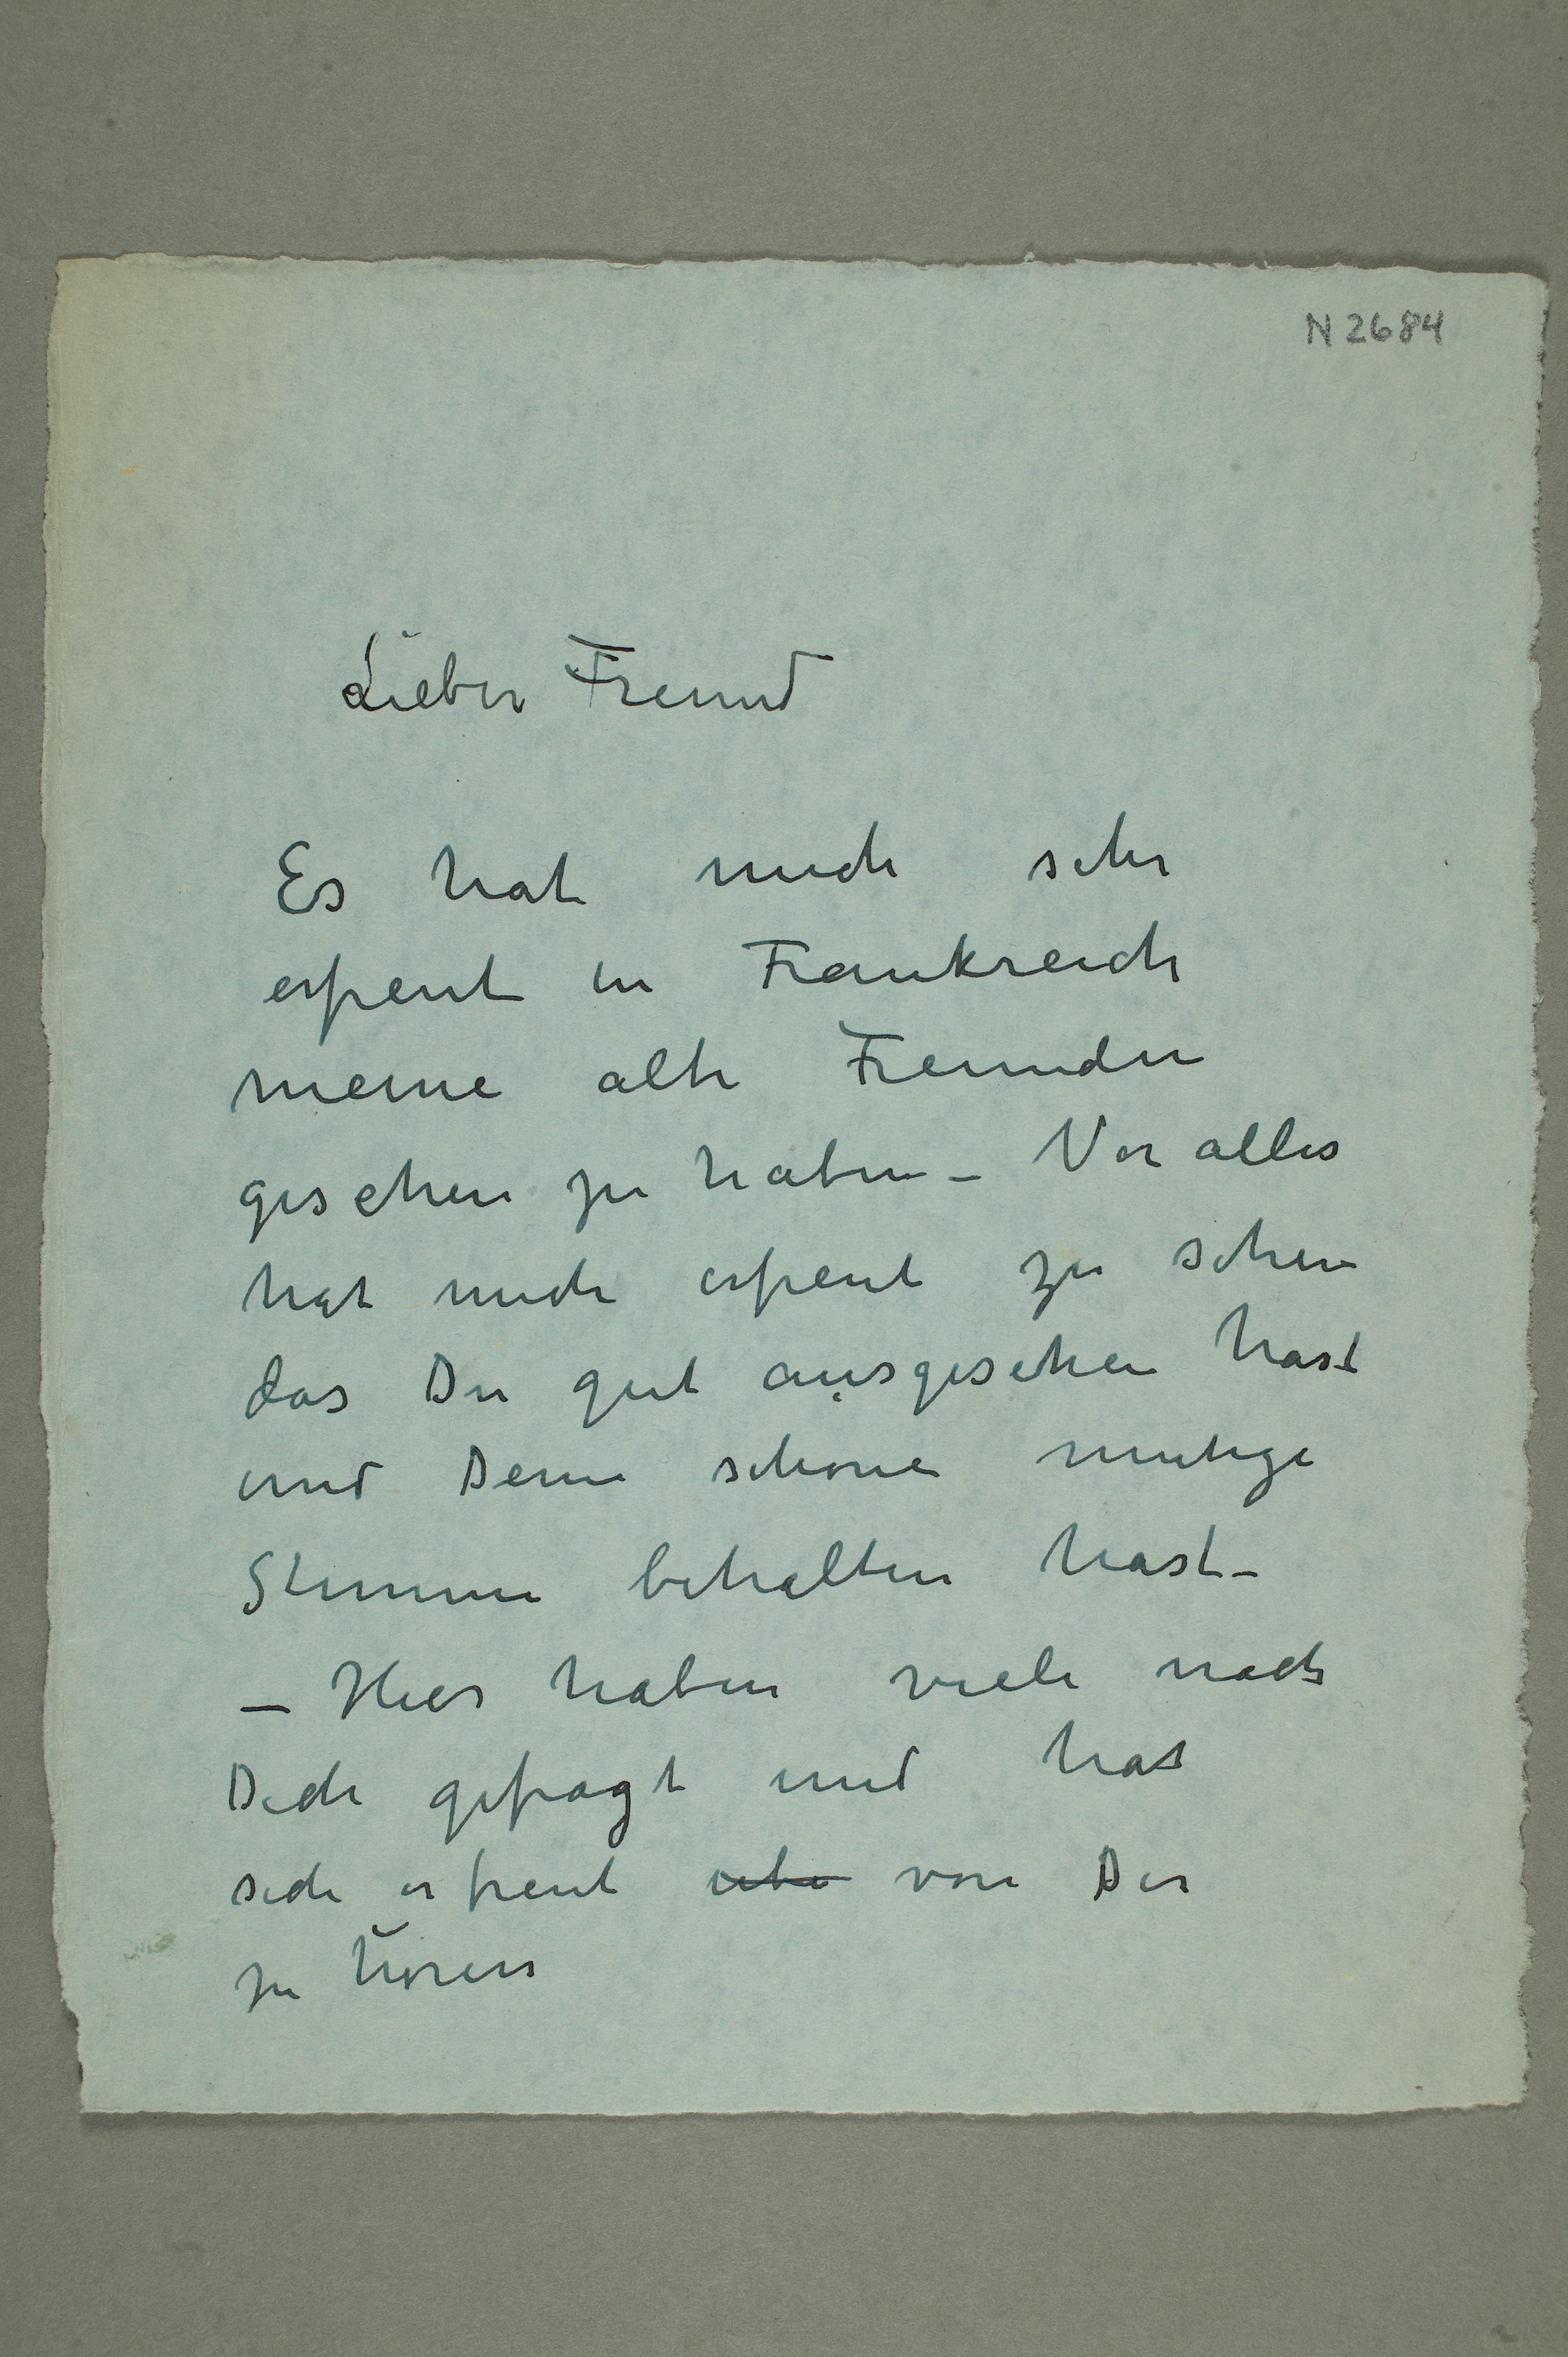 N 2684
Lieber Freund
Es hat mich sehr
erfreut in Frankreich
meine alte Freunden
gesehen zu haben – Vor alles
hat mich erfreut zu sehen
das Du gut ausgesehen hast
und Deine schöne mutige
Stimme behalten hast –
– Hier haben viele nach
Dich gefragt und hat
sich erfreut von Dir
zu hören